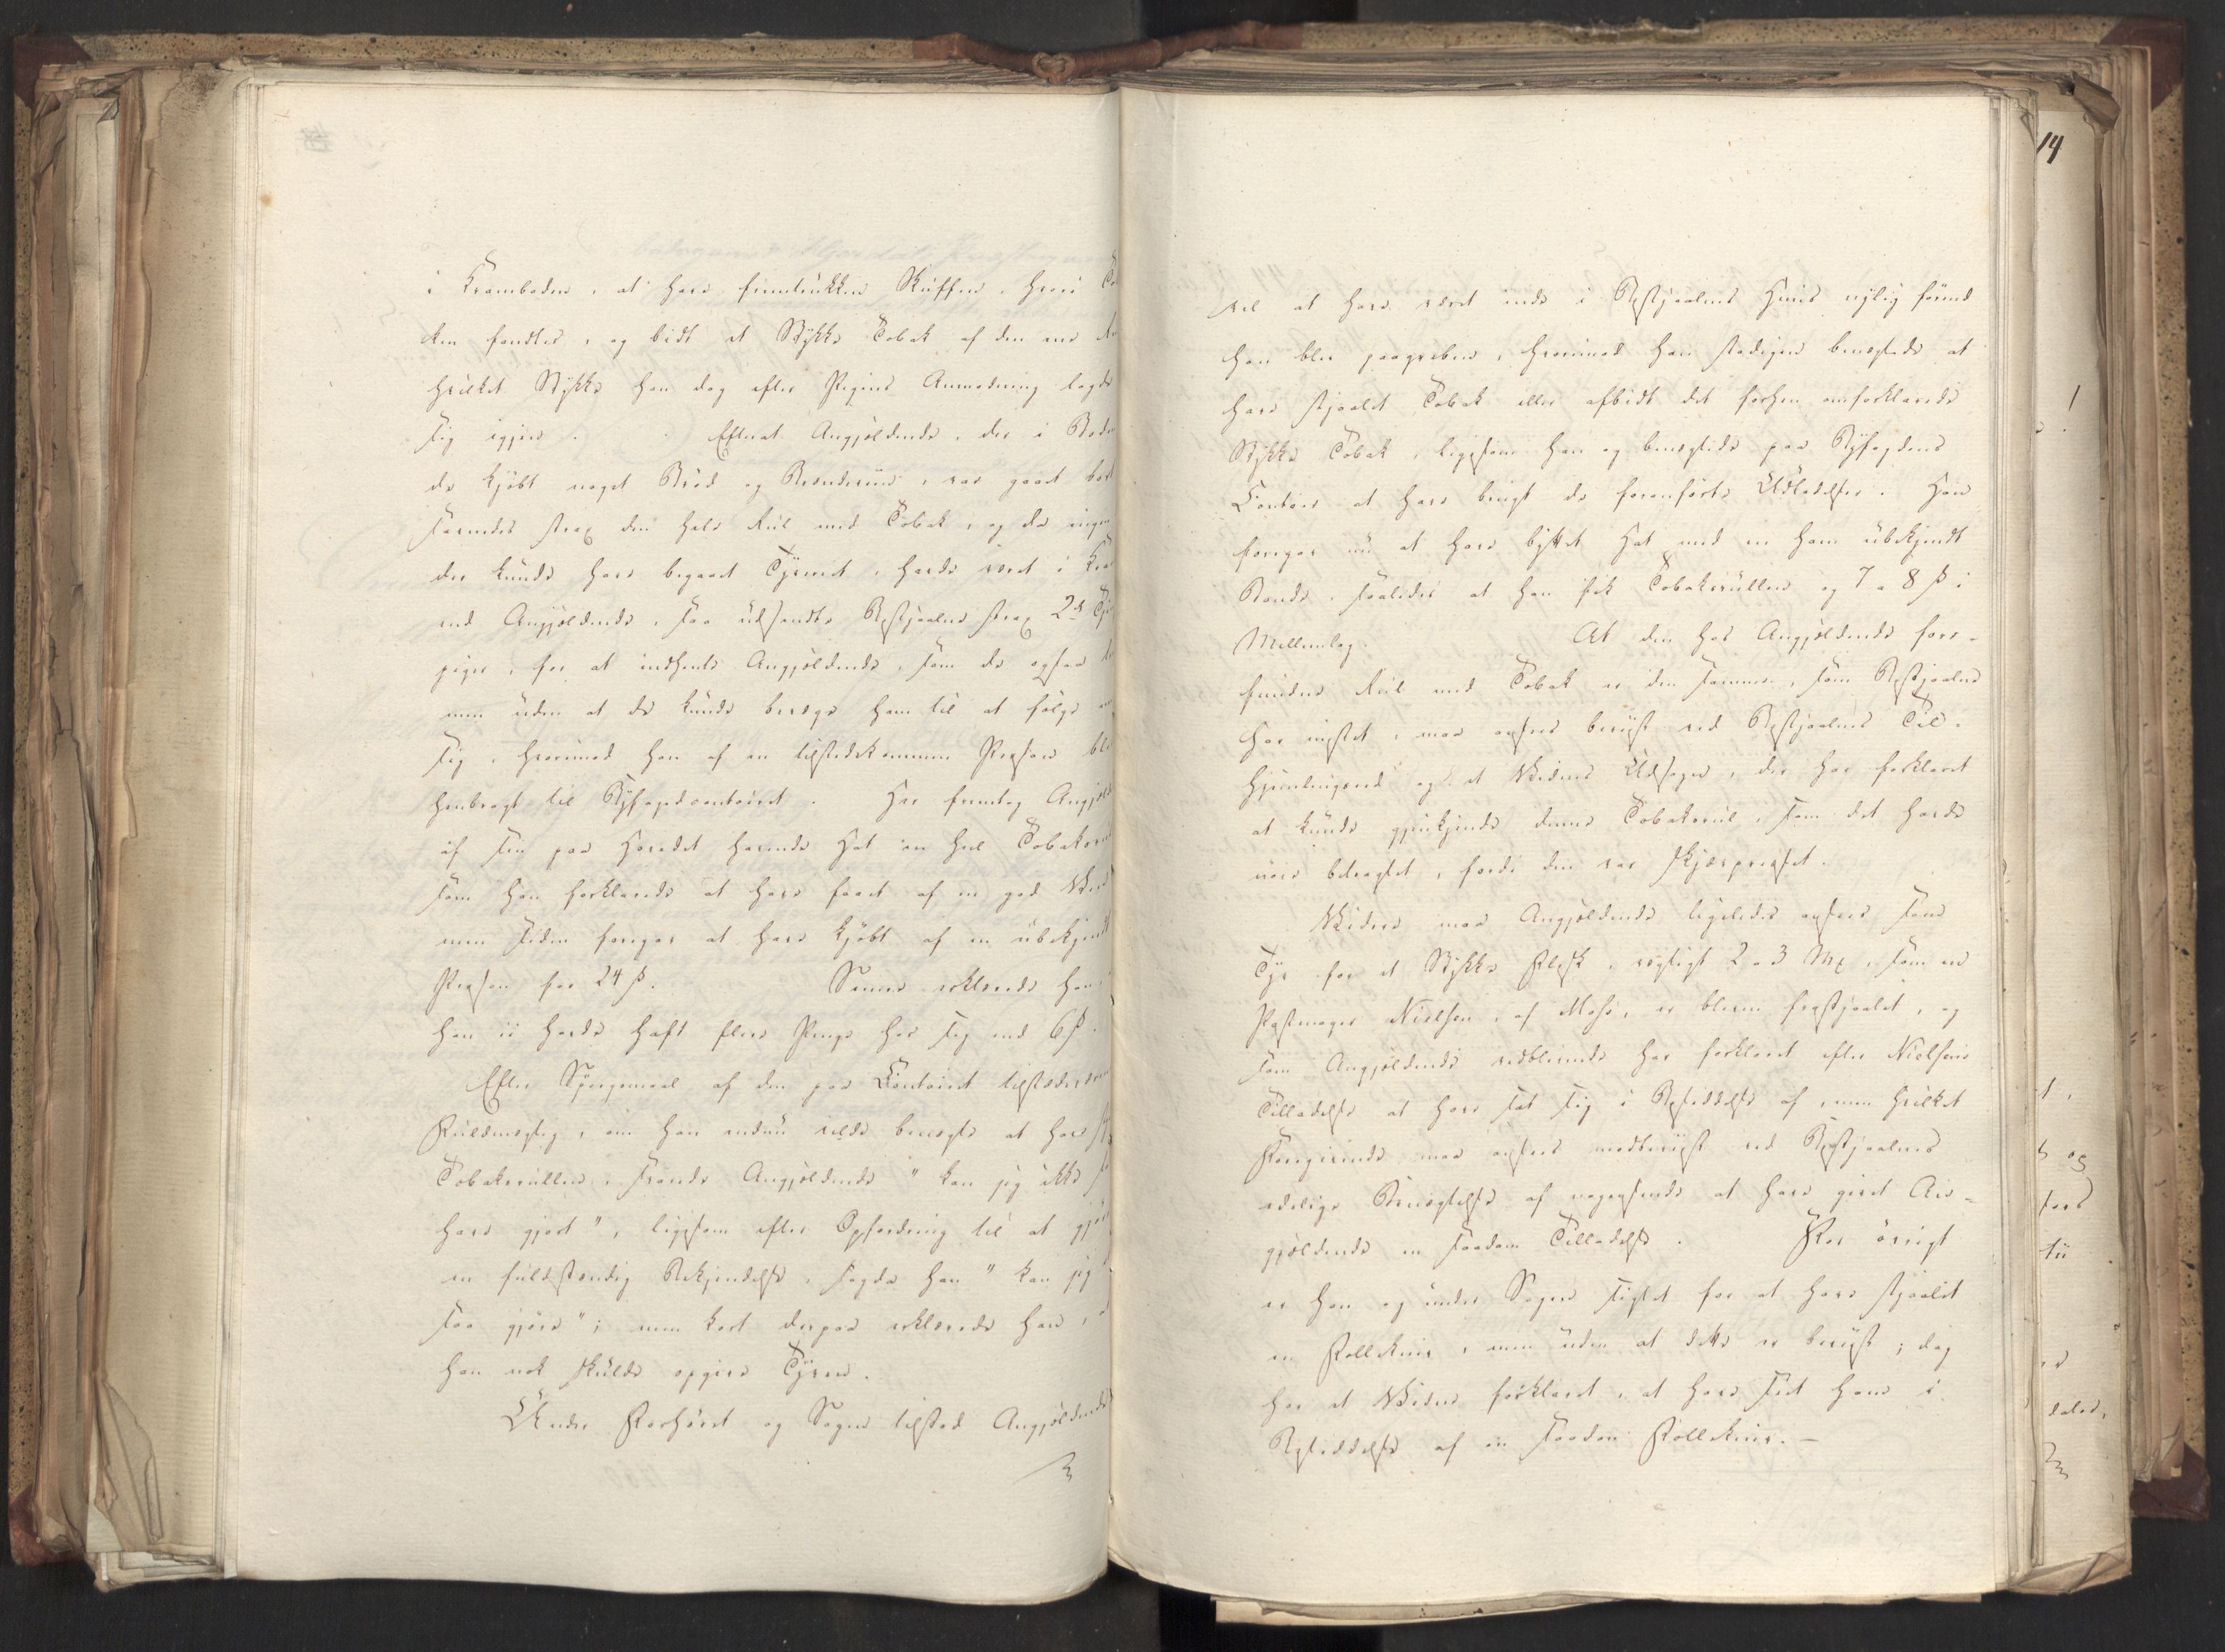 i Kramboden, at have fremtrukken Skuffen, hvori To
ken fandtes, og bidt et Stykke Tobak af den ene
hvilket Stykke han dog efter Pigens Anmodning lagde
sig igjen. Efterat Angjældende, der i Bode
de kjøbt noget Brød og Brændeviin, var gaaet bort
savnedes strax den hele Rul med Tobak, og da ingen
der kunde have begaaet Tyveriet, havde været i Kra
end Angjældende, saa udsendte Bestjaalne strax 2de Tje
piger, for at indhente Angjældende, som de ogsaa
men uden at de kunde bevæge ham til at følge
sig, hvorimod han af en tilstedekommen Person ble
henbragt til Byfogedcontoiret. Her fremtog Angjæld
af sin paa Hovedet havende Hat en heel Tobaksrul
som han forklarede at have faaet af en god Ven
men siden foregav at have kjøbt af en ubekjendt
Person for 24 ß. Senere erklærede han
han ei havde haft flere Penge hos sig end 6 ß.
Efter Spørgsmaal af den paa Contoiret tilstedeværen
Fuldmægtig, om han endnu vilde benægte at have
Tobaksrullen, svarede Angjældende "kan jeg ikke
have gjort", ligesom efter Opfordring til at gjør
en fuldstændig Bekjendelse, sagde han "kan jeg
saa gjøre"; men kort derpaa erklærede han,
han nok skulde opgive Tyven.
Under Forhøret og Sagen tilstod Angjældende
vel at have været inde i Bestjaalnes Huus nylig førend
han blev paagreben, hvorimod han stadigen benægtede at
have stjaalet Tobak eller afbidt det forhen omforklarede
Stykke Tobak, ligesom han og benægtede paa Byfogdens
Contoir at have brugt de foranførte Udladelser. Han
foregav nu at have byttet Hat med en ham ubekjendt
Bonde, saaledes at han fik Tobaksrullen og 7 a 8 ß i
Mellemlag. At den hos Angjældende fore-
fundne Rul med Tobak er den samme, som Bestjaalne
har mistet, maa ansees beviist ved Bestjaalnes Til-
hjemlingseed og et Vidnes Udsagn, der har forklaret
at kunde gjenkjende denne Tobaksrul, som det havde
nøie betragtet, fordi den var skjævpresset.
Videre maa Angjældende ligeledes ansees som
Tyv for et Stykke Flesk, vægtigt 2 a 3 Mk, som en
Pastmager Nielsen, af Moss, er bleven frastjaalet, og
som Angjældende vedblivende har forklaret efter Nielsens
Tilladelse at have sat sig i Besiddelse af, men hvilket
Foregivende maa ansees modbeviist ved Bestjaalnes
edelige Benægtelse af nogensinde at have givet An-
gjældende en saadan Tilladelse. For øvrigt
er han og under Sagen sigtet for at have stjaalet
en Follekniv, men uden at dette er beviist; dog
har et Vidne forklaret, at have seet ham i
Besiddelse af en saadan Follekniv.—
14